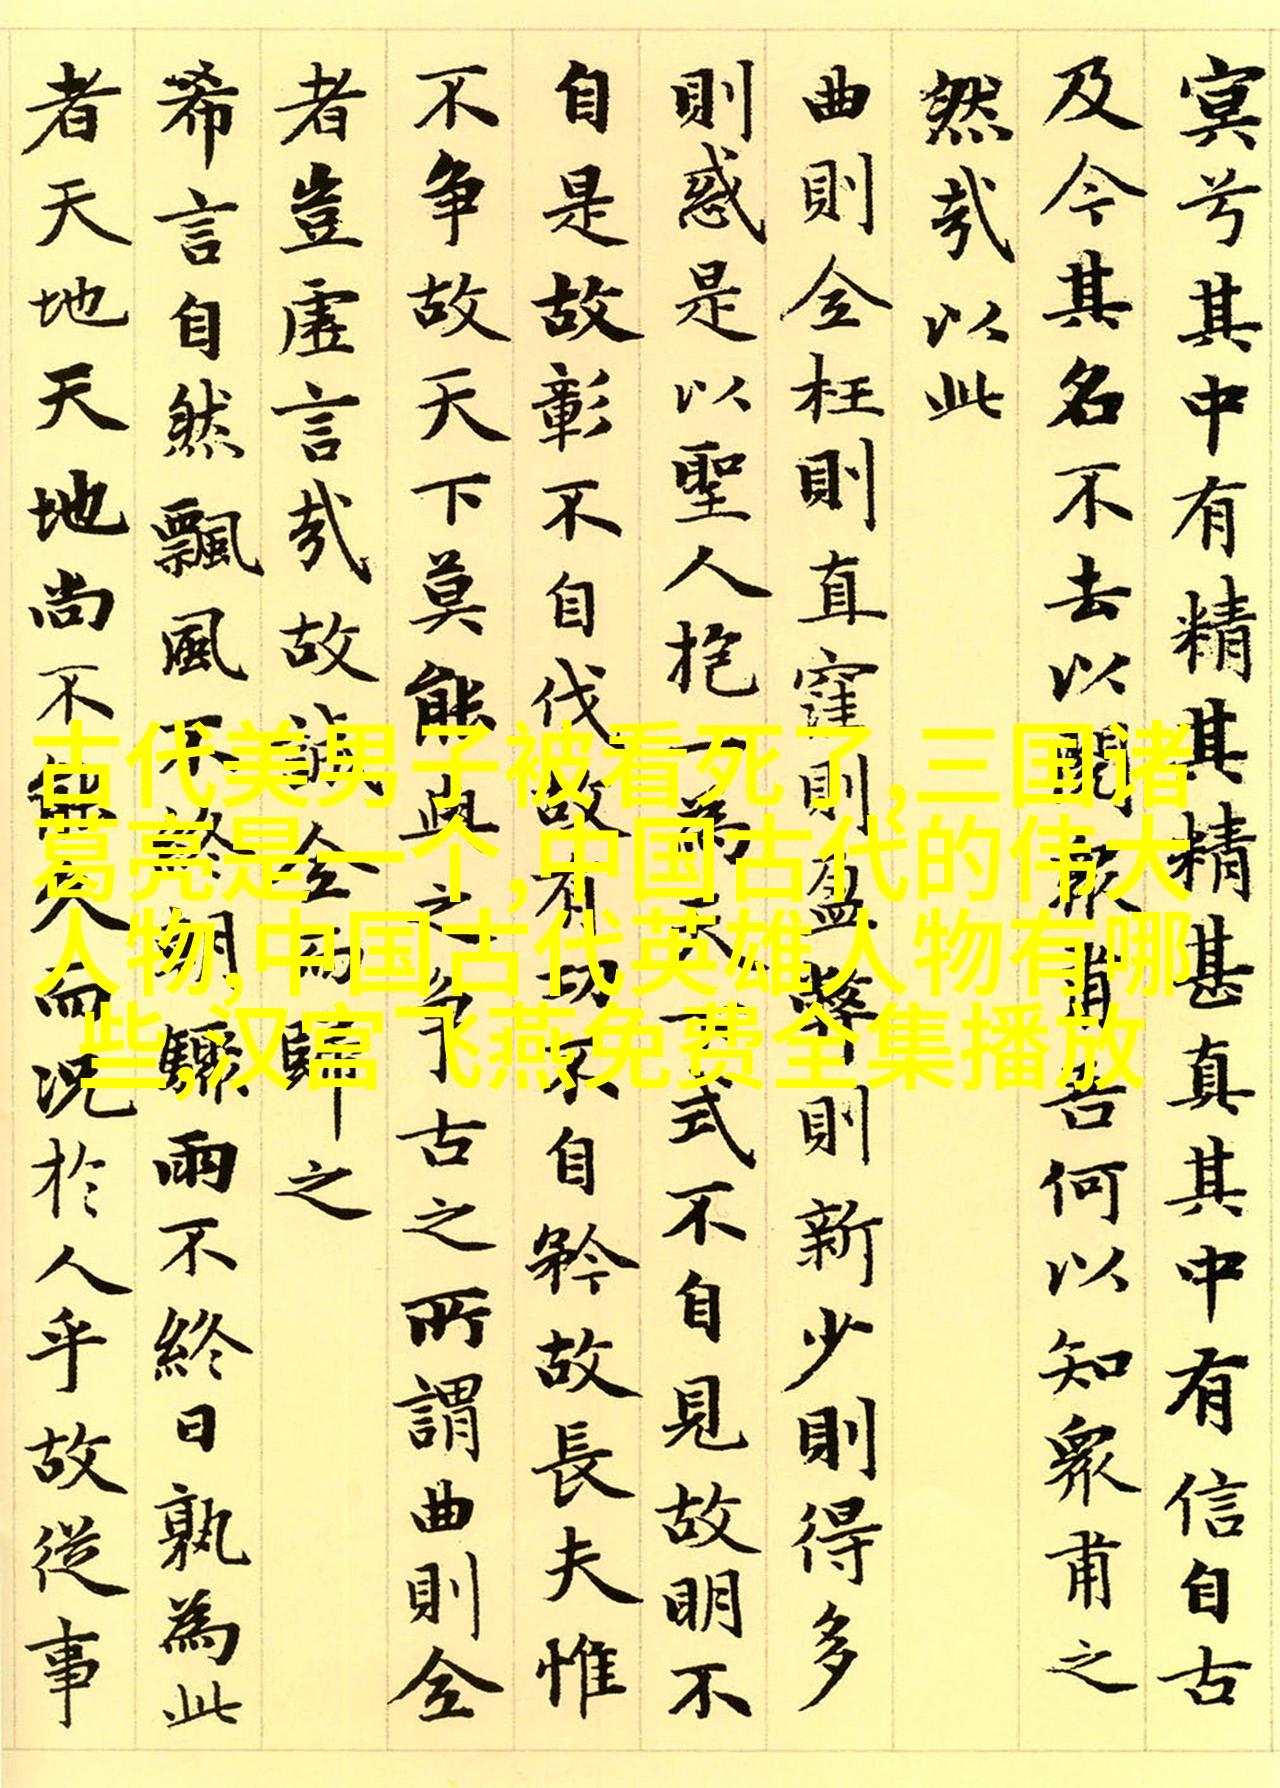 寞兮其中有精其精甚真其中有信自古
及今其名不去以閱衆甫吾何以知衆甫之
然哉以此
曲則全枉則直窪則盈弊則新少則得多
則惑是以聖人抱一為天下式不自見故明不
自是故彰不自伐故有功不自矜故長夫惟
不争故天下莫能與之争古之所謂曲則全
者豈虛言哉故誠全而歸之
希言自然飄風不終朝驟雨不終日孰為此
者天地天地尚不能久而況於人乎故從事
古代美男子被看死了,三国诸
葛亮是一个,中国古代的伟大
人物,中国古代英雄人物有哪
些,汉宫飞燕免费全集播放